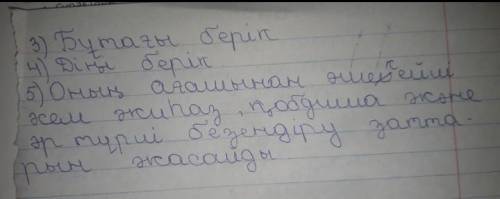 3) Бутағы берік
4) Діңі берік
5) Оның ағашынан әшекейлі
жем жиһаз, қобдиша және
әр түрлі безендіру затта-
рын жасайды